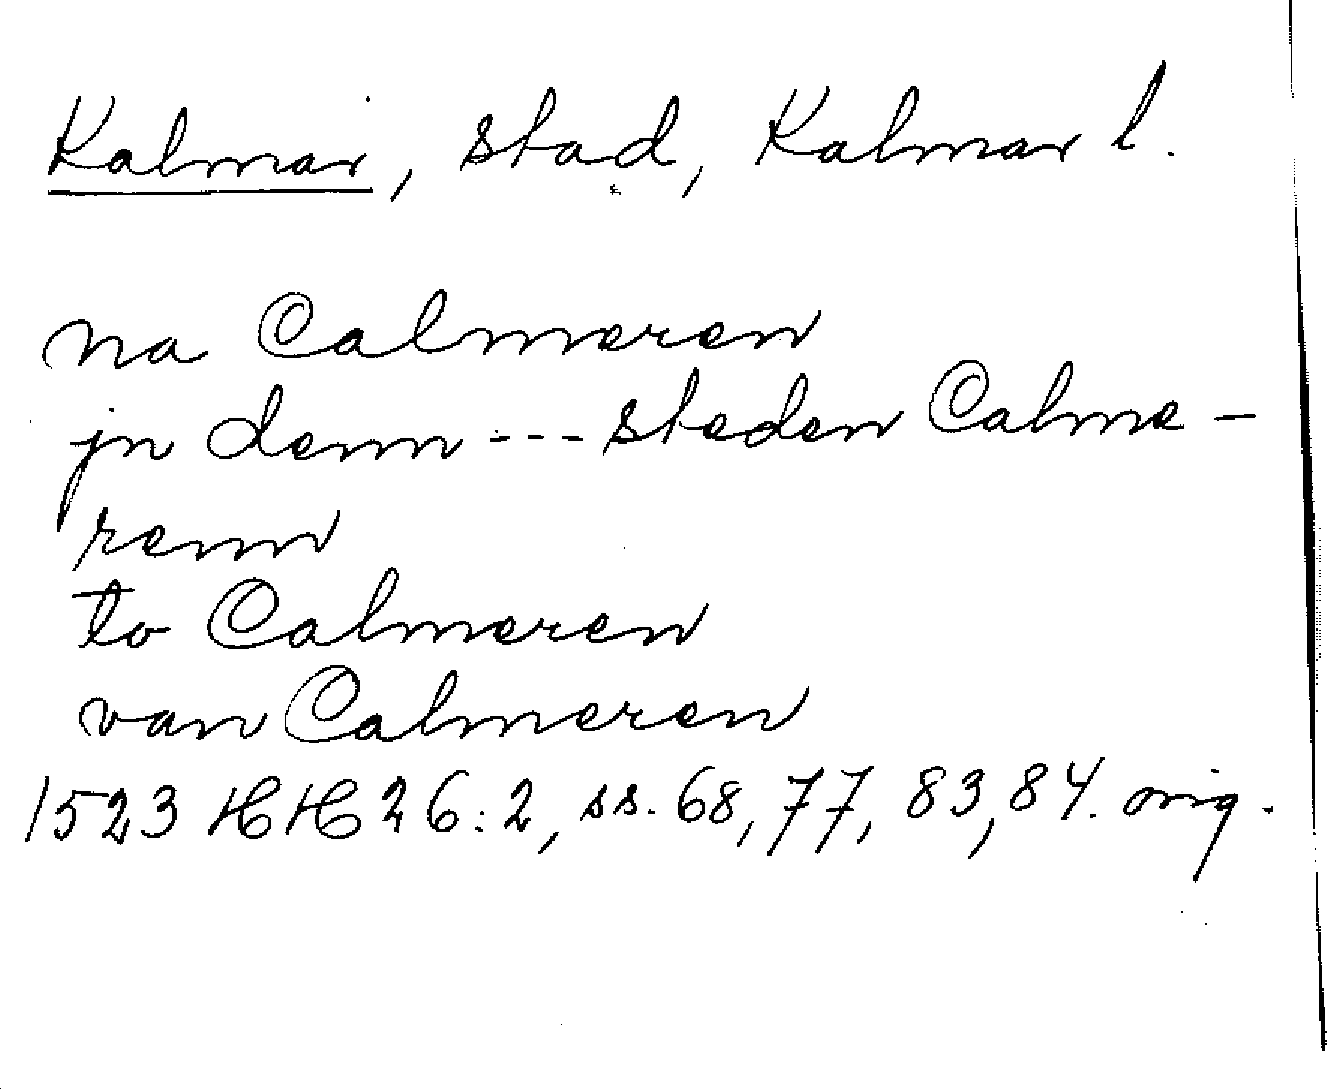 Kalmar, stad, Kalmar l.
na Calmeren
jn denn --- steden Calme-
renn
to Calmeren
van Calmeren
1523 HH 26:2, ss. 68, 77, 83, 84. orig.